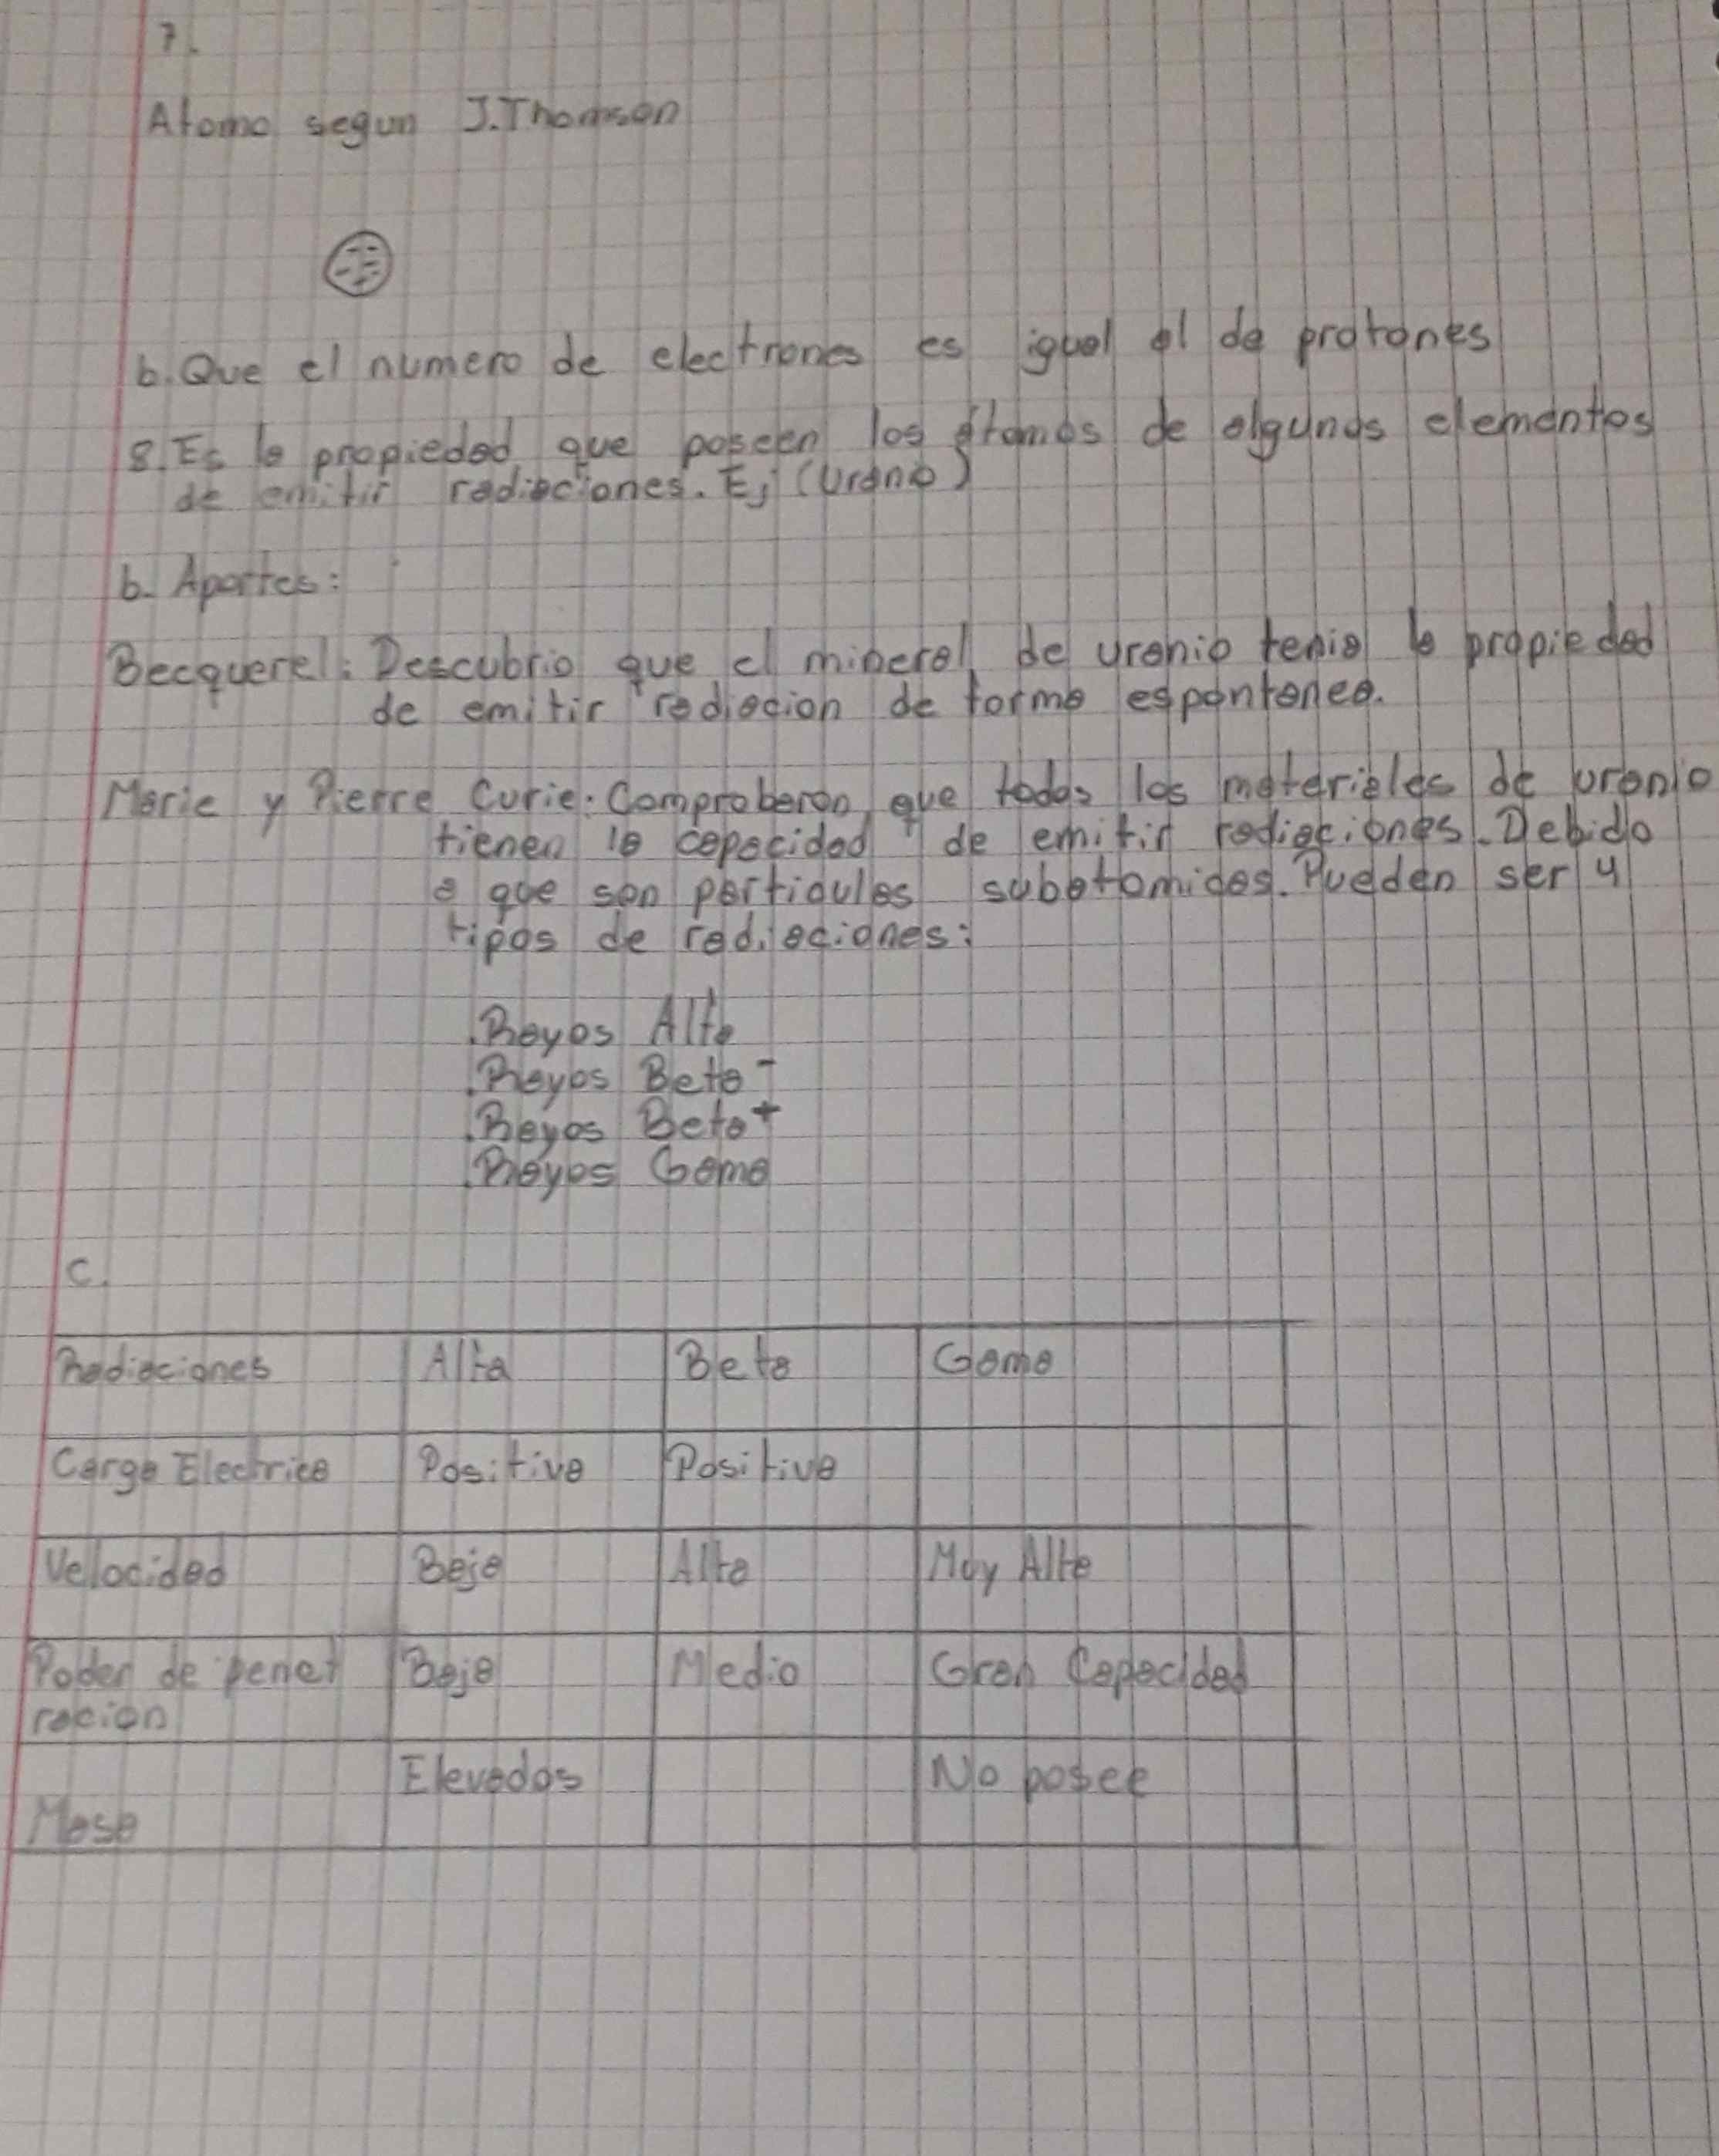 7.
Atomo segun J.Thomson
b. Que el numero de electrones es igual al de protones
8. Es la propiedad que poseen los átomos de algunos elementos
de emitir radiaciones. Ej (Urano)
b. Aportes:
Becquerel: Descubrio que el mineral de uranio tenia la propiedad
de emitir radiacion de forma espontanea.
Marie y Pierre Curie: Comproberon que todos los materiales de uranio
tienen la capacidad de emitir radiaciones. Debido
a que son particulas subatomicas. Pueden ser 4
tipos de radiaciones:
.Rayos Alfa
.Rayos Beta -
.Rayos Beta +
.Rayos Gama
c.
Radiaciones Alfa Beta Gama
Carga Electrica Positiva Positiva
Velocidad Baja Alta Muy Alta
Poder de penet Baja Medio Gran Capacidad
racion
Elevados No posee
Masa